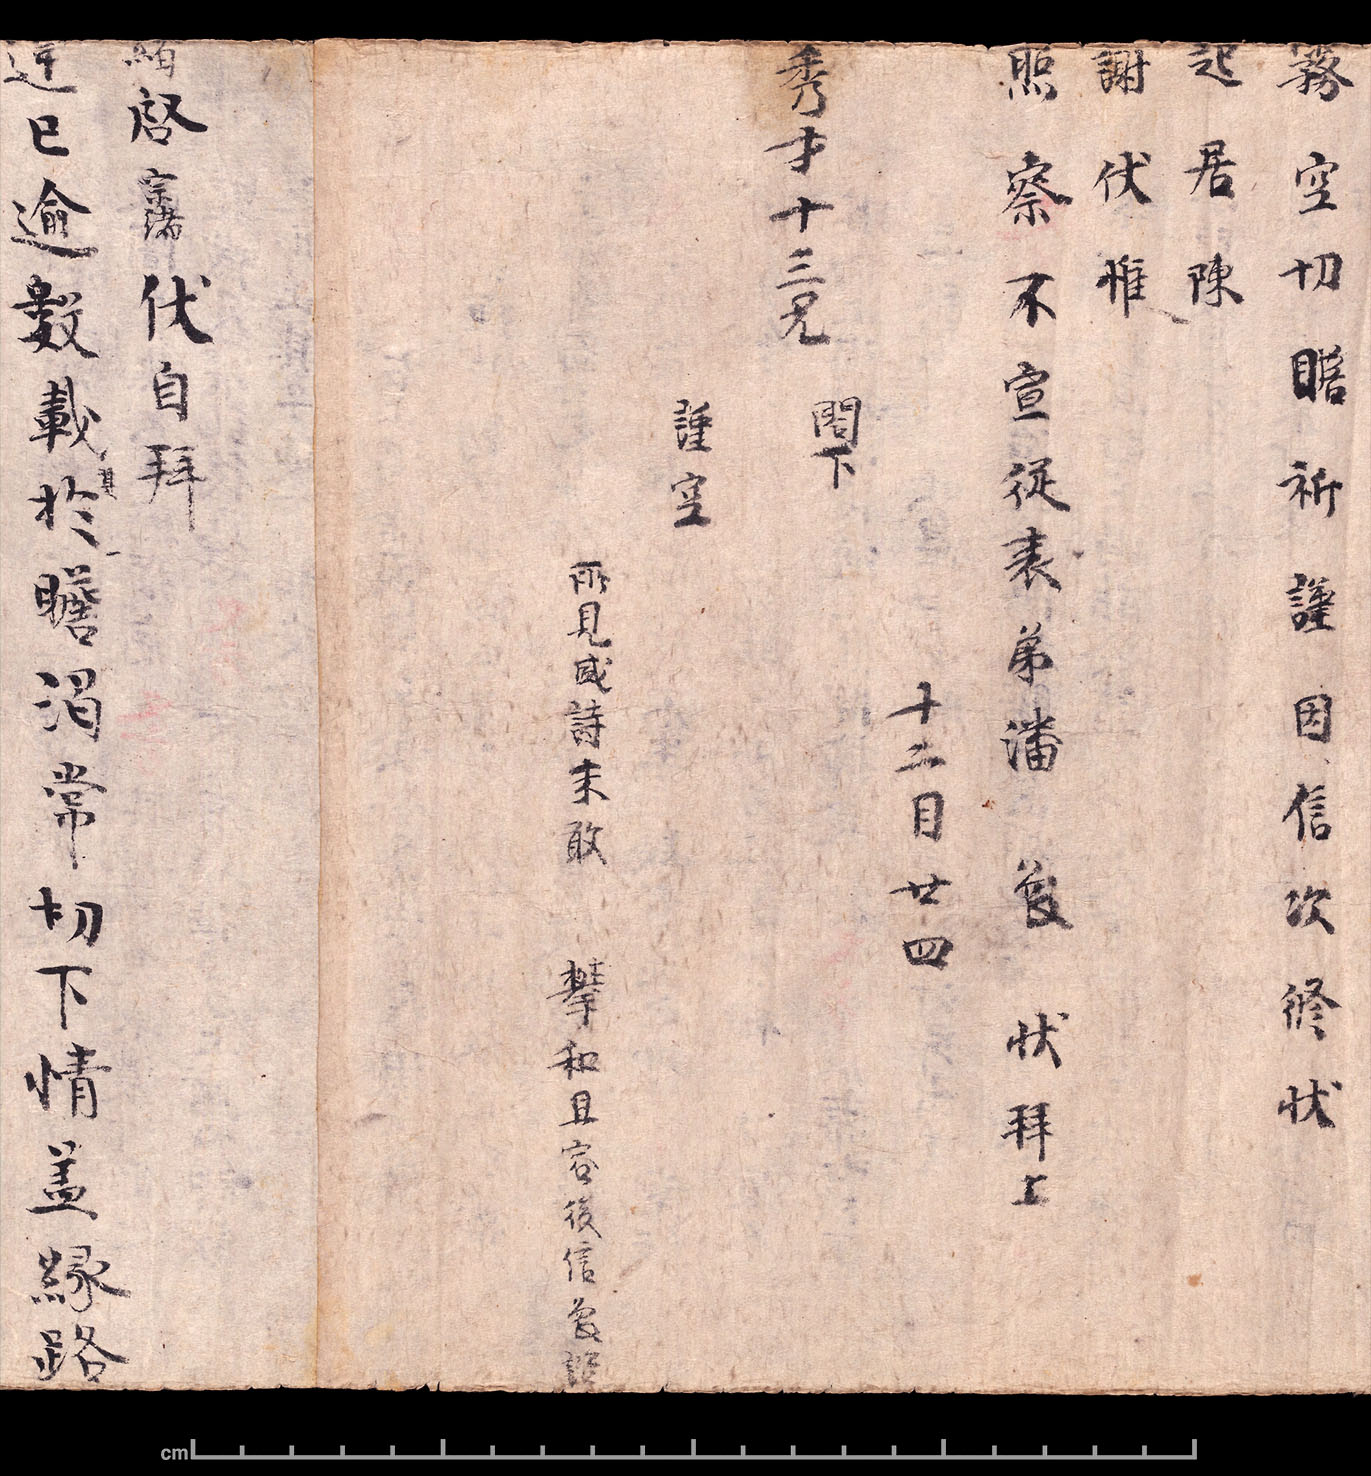 務空切瞻祈謹因信次脩状
起居陳
謝伏惟
照察不宣従表弟潘 状拜上
十二月廿四
秀才十三兄 閤下
謹空
所見感詩未敢 攀和且容後信
啓 伏自拜
違已逾數載於瞻渴常切下情盖緣路
cm